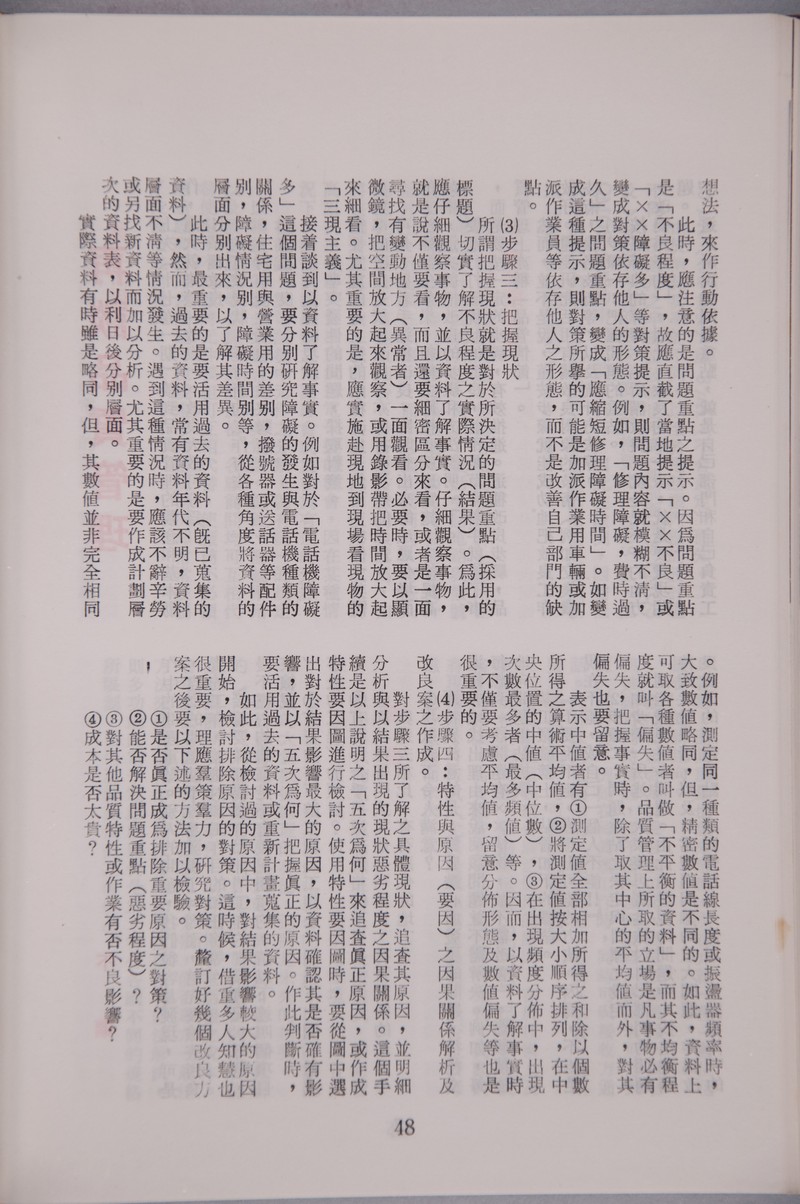 想法，來作行動依據。
此時，應注意的是問題重點之提示。因爲問題重點
是「不良程度」，故應直截了當地提示「××不良」或
「××障礙多」等對策提示，則問題內容就模糊不清，
變成對策依存他人的形態。例如，「修理障礙，費時過
久」之問題重點，變成「應縮短修理障礙時間」。如變
成這種提示，則對策所擧的可能是加派作業用車輛或加
派作業員等依存他人之形態，而不是改善自己部門的缺
點。
⑶步驟三：把握現狀
所謂把握現狀就是對於所決定的問題重點（採用的
標題）切實了解不良程度之實際情況（結果）。爲此，
應仔細觀察事物，並以資料了解事實。仔細觀察事物，
就是說不僅要看，而且還要細密區分來看，或者是一面
尋找有變動地方（異常者）一面觀看。必要時，要以顯
微鏡，把空間放大起來觀察，或用錄影帶把時間放大起
來細看。尤其重要的是，應實施赴現地到現場看現物的
「三現主義」。
接着談到以資料了解事實。例如對於「電話機障礙
多」這個問題，要分別研究障礙的發生與電話機種類的
關係，住宅用與營業用的差別，撥號器或送話器等配件
別，障礙情況別，障礙時間別等，從各種角度將資料的
層面分別出來，以了解其差異。
此時，最重要的是要活用過去的資料（旣已蒐集的
資料），然而，過去的資料，常有資料年代不明，資料
層面不清等情況發生。遇到這種情況時，應該不辭辛勞
或另找新資料而加以分析。尤其重要的是要作成計劃層
次的資料表，以利日後分別層面。
實際資料有時雖是略同，但，其數値並非完全相同
。例如，測定同一種類的電話線長度或振盪器頻率時，
大致數値略同，但，精密數値是不同的。如此，資料上
可取各種數値者叫做「不平衡的資料」，而其不均衡程
度就叫「偏失」。品質管理上所取的立場是凡事物必有
偏失，把握事實時，除了取其中心的平均値而外，對其
偏失也要留意。
表示中値者有①測定値全部相加所得之和除以個數
所得之算術平均値，②將測定値按大小順序排列，在中
央位置的中値（中位數），③在出現頻度分佈中，出現
次數最多者（最多頻値）等。因而，以資料了解事實時
，不僅要考慮平均値，留意分佈形態及數値偏失等也是
很重要的。
⑷步驟四：特性與原因（要因）之因果關係解析及
改良案之作成。
對步驟三所了解之具體現狀，追查其原因，並明細
分析與以結果出現的現狀惡劣程度之因果關係。這個手
續是以上說明之「五次爲何」來追查眞正原因，或作成
特性要因圖進行檢討。使用特性要因圖時，要從圖中選
出對於結果影響最大的原因，以資料確認其是否確有影
響，並以「五次爲何」把握眞正的原因。作此判斷時，
要活用過去的資料或重新計畫蒐集的資料。
如此，從檢討過的原因中，對結果影響較大的原因
開始，檢討排除原因的對策。這時候，借重多人知慧也
很重要，理應羣策羣力，研究對策。釐訂好幾個改良方
案之後要以下述的方法加以檢驗。
①是否眞正成爲排除重要原因之對策？
②能否解決問題重點（惡劣程度）？
③對其他品質特性或作業有否不良影響？
④成本是否太貴？
48